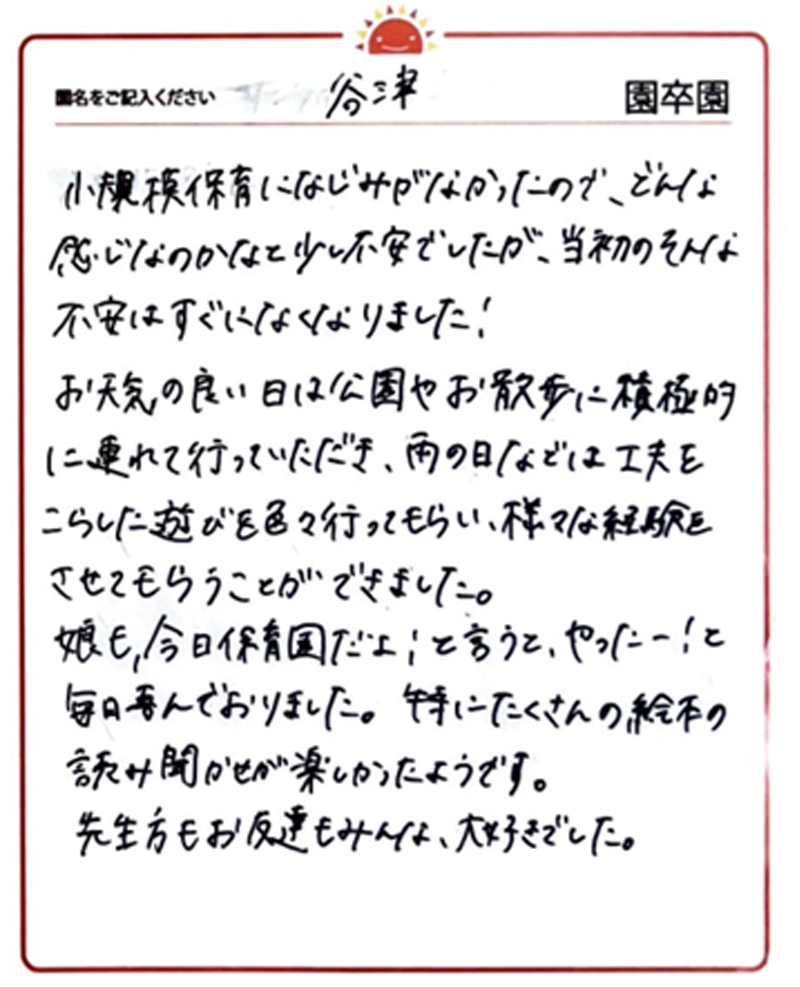 園名をご記入ください 谷津 園卒園
小規模保育になじみがなかったので、どんな
感じなのかなと少し不安でしたが、当初のそんな
不安はすぐになくなりました!
お天気の良い日は公園やお散歩に積極的
に連れて行っていただき、雨の日などは工夫を
こらした遊びを色々行ってもらい、様々な経験を
させてもらうことができました。
娘も、今日保育園だよ!と言うと、やったー!と
毎日喜んでおりました。特にたくさんの絵本の
読み聞かせが楽しかったようです。
先生方もお友達もみんな、大好きでした。